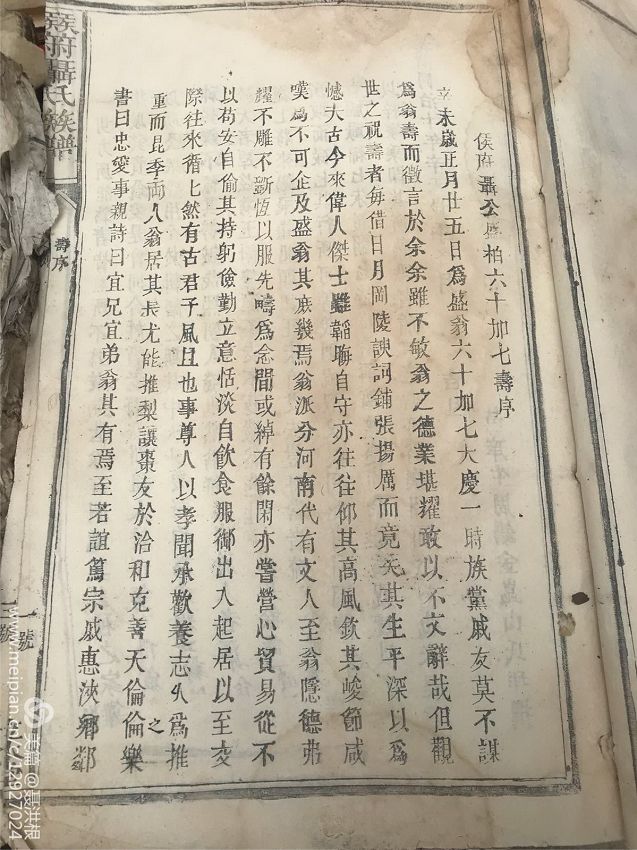 侯府聶公盛柏六十加七壽序
辛未歲正月廿五日爲盛翁六十加七大慶一時族黨戚友莫不謀
爲翁壽而徵言於余余雖不敏翁之德業堪耀敢以不文辭哉但觀
世之祝壽者每借日月岡陵諛詞鋪張揚厲而竟失其生平深以爲
憾大古今來偉人傑士雖韜晦自守亦往往仰其高風欽其峻節咸
嘆爲不可企及盛翁其庶幾焉翁派分河南代有文人至翁隱德弗
耀不雕不斲恆以服先疇爲念間或綽有餘閑亦嘗營心貿易從不
以苟安自偷其持躬儉勤立意恬淡自飲食服御出入起居以至交
際往來循匕然有古君子風且也事尊人以孝聞承歡養志人爲推
重而昆季両人翁居其長尤能推梨讓棗友於洽和克善天倫倫樂
之
書曰忠愛事親詩曰宜兄宜弟翁其有焉至若誼篤宗戚惠浹鄉鄰
侯府聶氏族譜
壽序
一號
www.meipian.cn/c/12927024
美篇@聂洪根